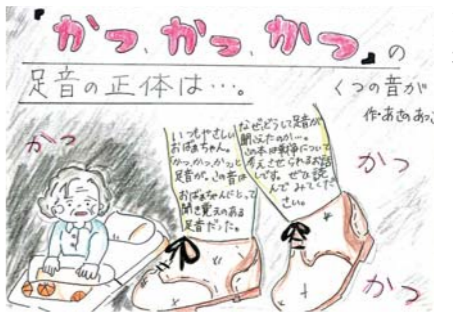 『かつ、かつ、かつ』の
足音の正体は…。
くつの音が
作・あさのあつこ
かつ
いつもやさしい
おばあちゃん。
かつ、かつ、かつと
足音が。この音は
おばあちゃんにとって
聞き覚えのある
足音だった。
なぜ、どうして足音が
聞こえたのか…。
この本は戦争について
考えさせられるお話
です。ぜひ読
んでみてくだ
さい。
かつ
かつ